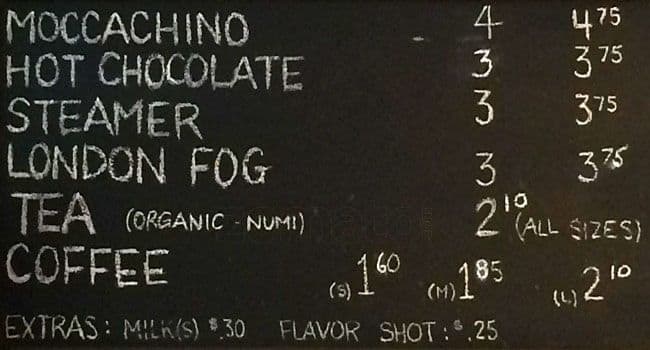 MOCCACHINO 4 4 75
HOT CHOCOLATE 3 3 75
STEAMER 3 3 75
LONDON FOG 3 3 75
TEA (ORGANIC - NUMI) 2 10 (ALL SIZES)
COFFEE (S) 1 60 (M) 1 85 (L) 2 10
EXTRAS: MILK(S) $.30 FLAVOR SHOT: $.25